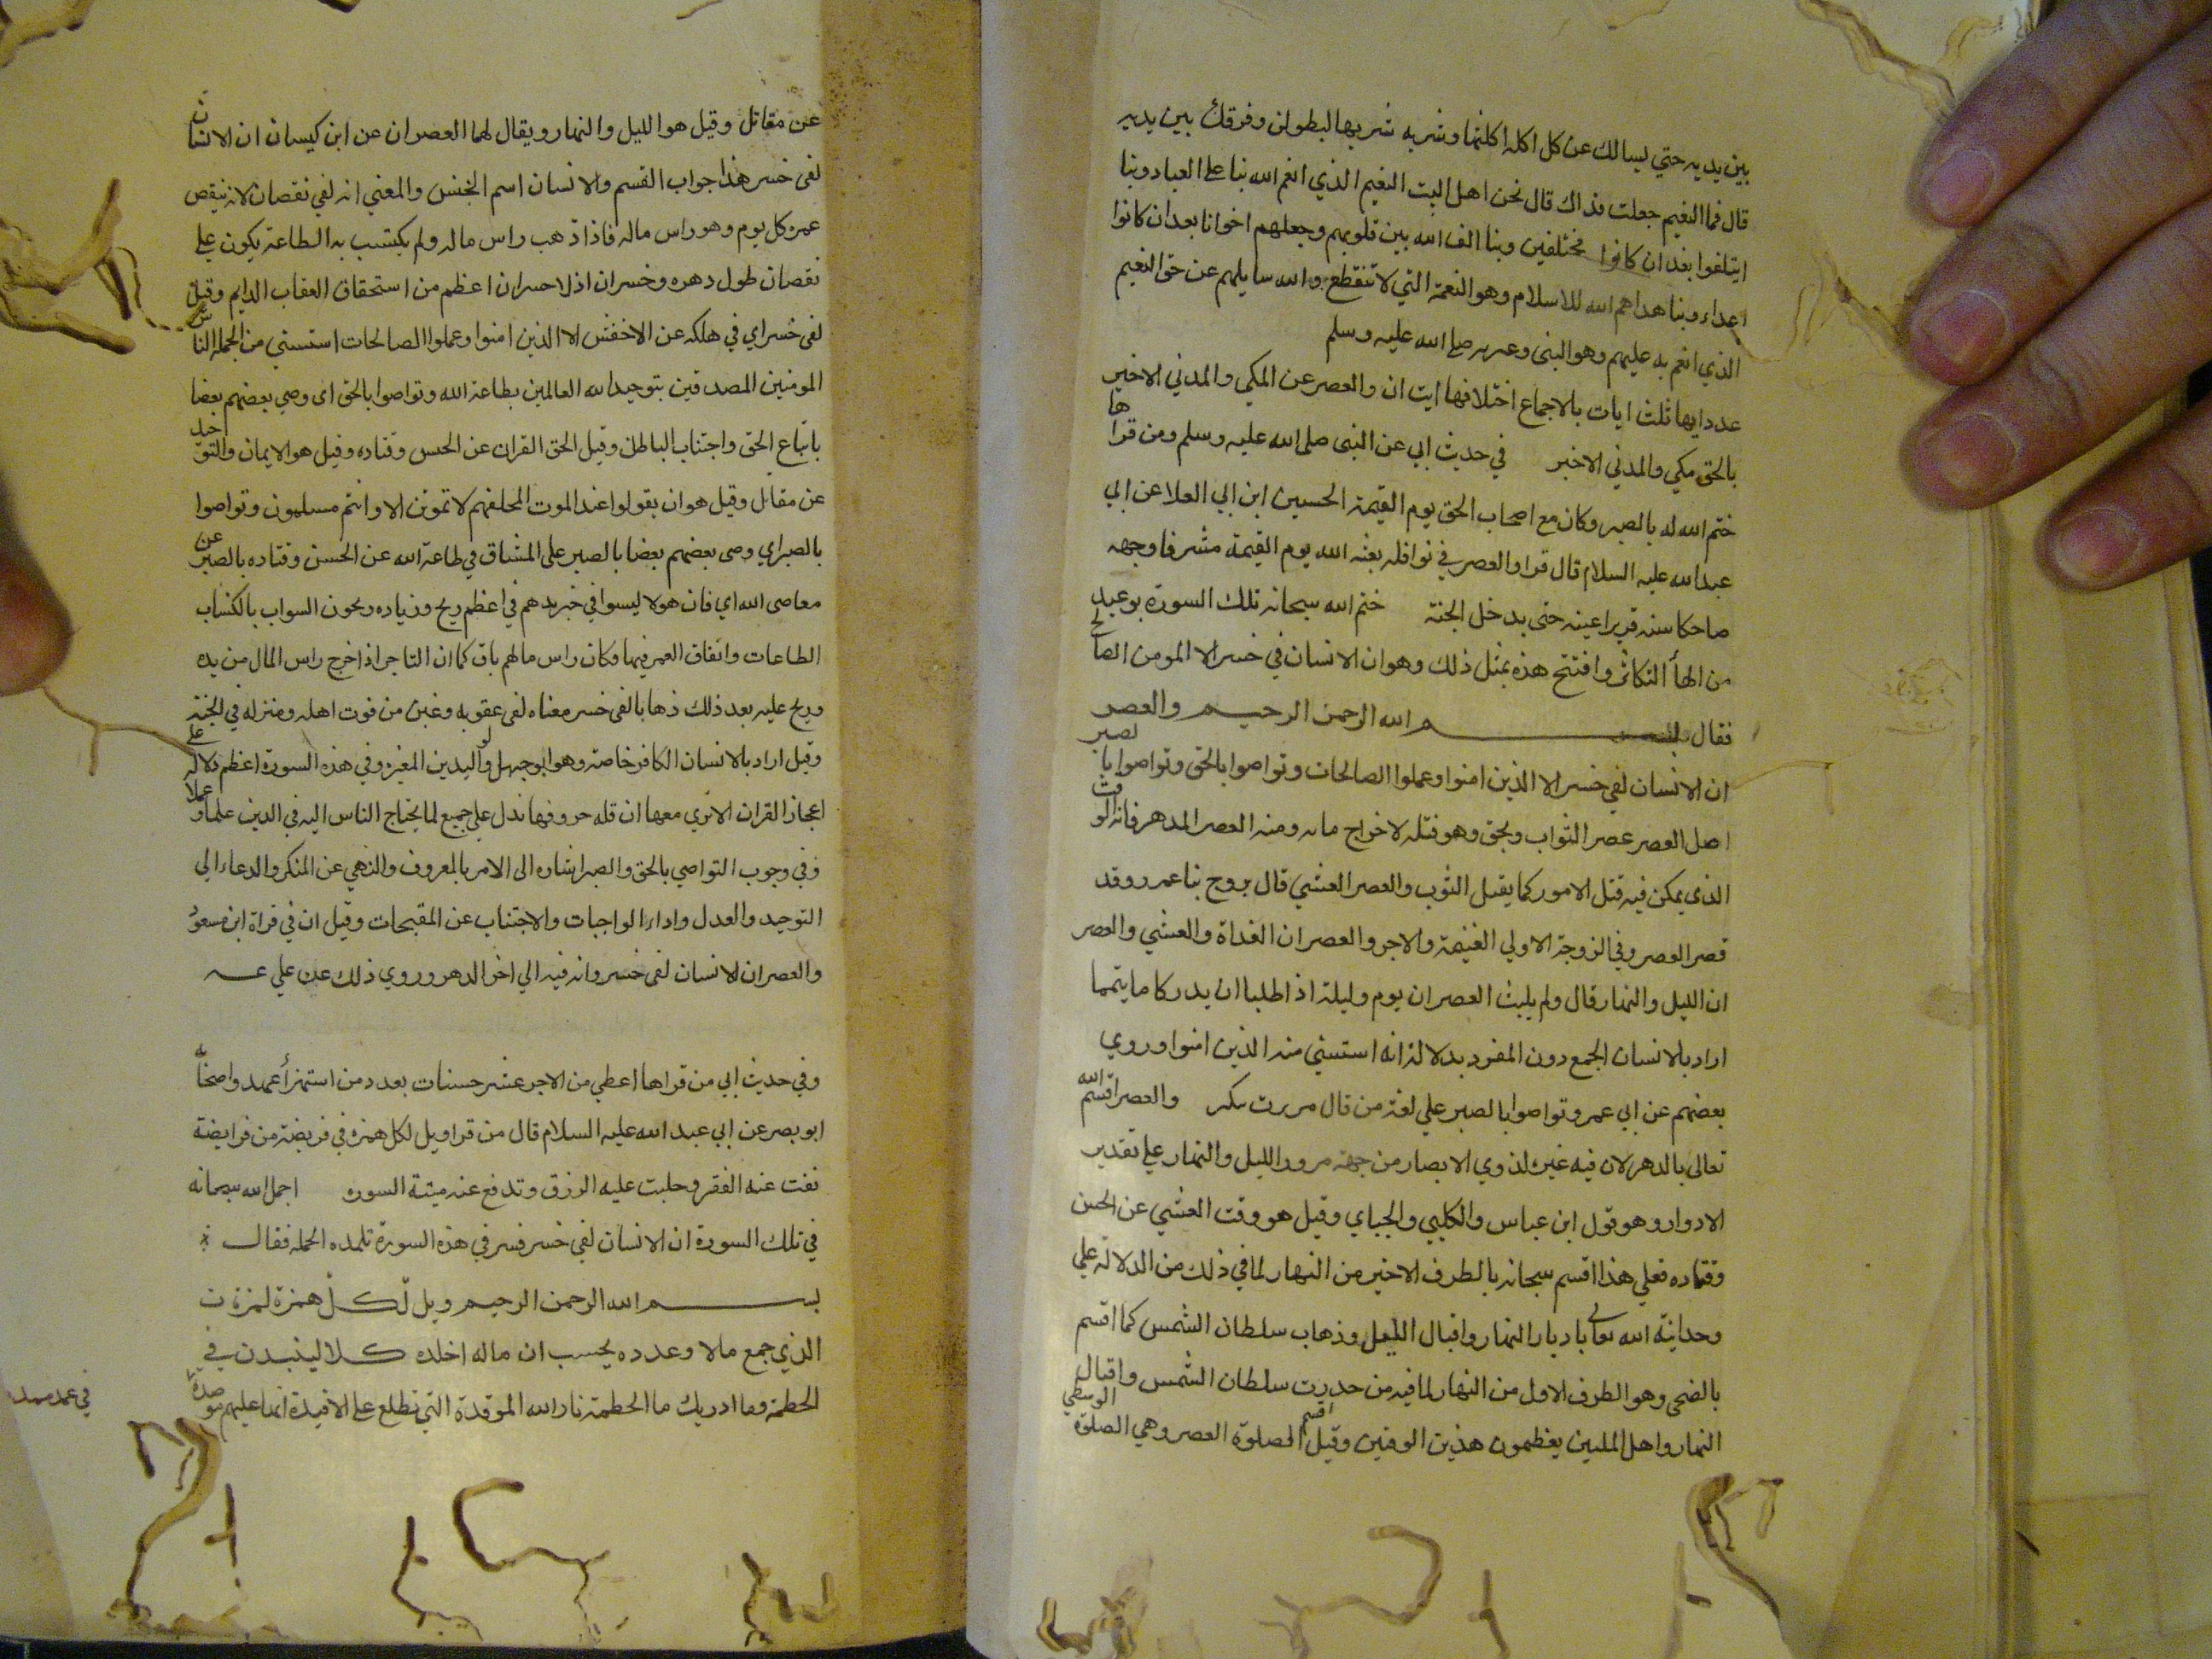 بين يديه حتي ليسالك عن كل اكله اكلتها وشربه شربها ليطولن وفوقك بين يديه
قال فما النعيم جعلت فداك قال نحن اهل البيت النعيم الذي انعم الله بنا علي العباد وبنا
ايتلفوا بعد ان كانوا مختلفين وبنا الف الله بين قلوبهم وجعلهم اخوانا بعد ان كانوا
اعداء وبنا هداهم الله للاسلام وهو النعمة التي لا تنقطع والله سايلهم عن حق النعيم
الذي انعم به عليهم وهو النبي وعترته صلي الله عليه وسلم
عدد ايها ثلث ايات بالاجماع اختلافها ايتان والعصر عن المكي والمدني الاخير
بالحق مكي والمدني الاخير في حديث ابي عن النبي صلي الله عليه وسلم ومن قراها
ختم الله له بالصبر وكان مع اصحاب الحق يوم القيمة الحسين ابن ابي العلا عن ابي
عبد الله عليه السلام قال من قرا والعصر في نوافله بعثه الله يوم القيمة مشرفا وجهه
ضاحكا سنه قريرا عينه حتي يدخل الجنة ختم الله سبحانه تلك السورة بوعيد
من الهاه التكاثر وافتتح هذه بمثل ذلك وهو ان الانسان في خسر الا المومن الصالح
فقال بسم الله الرحمن الرحيم والعصر
ان الانسان لفي خسر الا الذين امنوا وعملوا الصالحات وتواصوا بالحق وتواصوا بالصبر
اصل العصر عصر الثواب ونحوه وهو فتله لاخراج مائه ومنه العصر الدهر فانه الوقت
الذي يمكن فيه فتل الامور كما يفتل الثوب والعصر العشي قال يروح بنا عمرو وقد
قصر العصر وفي الروحة الاولي الغنيمة والاجر والعصران الغداة والعشي والعصر
ان الليل والنهار قال ولم يلبث العصران يوم وليلة اذا طلبا ان يدركا ما يتمما
اراد بالانسان الجمع دون المفرد بدلالة انه استثني منه الذين امنوا وروي
بعضهم عن ابي عمر وتواصوا بالصبر علي لغة من قال مررت ببكر والعصر اقسم الله
تعالي بالدهر لان فيه عبرة لذوي الابصار من جهة مرور الليل والنهار علي تقدير
الادوار وهو قول ابن عباس والكلبي والجباي وقيل هو وقت العشي عن الحسن
وقتاده فعلي هذا اقسم سبحانه بالطرف الاخير من النهار لما في ذلك من الدلالة علي
وحدانية الله تعالي بادبار النهار واقبال الليل وذهاب سلطان الشمس كما اقسم
بالضحي وهو الطرف الاول من النهار لما فيه من حدوث سلطان الشمس واقبال
النهار واهل الملتين يعظمون هذين الوقتين وقيل اقسم الصلوة العصر وهي الصلوة الوسطي
عن مقاتل وقيل هو الليل والنهار ويقال لهما العصران عن ابن كيسان ان الانسان
لفي خسر هذا جواب القسم والانسان اسم الجنس والمعني انه لفي نقصان لانه ينقص
عمره كل يوم وهو راس ماله فاذا ذهب راس ماله ولم يكتسب به الطاعة يكون علي
نقصان طول دهره وخسران اذ لا خسران اعظم من استحقاق العقاب الدايم وقيل
لفي خسر اي في هلكه عن الاخفش الا الذين امنوا وعملوا الصالحات استثني من الجملة الناس
المومنين المصدقين بتوحيد الله العالمين بطاعة الله وتواصوا بالحق اي وصي بعضهم بعضا
باتباع الحق واجتناب الباطل وقيل الحق القران عن الحسن وقتاده وقيل هو الايمان والتوحيد
عن مقاتل وقيل هو ان يقولوا عند الموت لمخلفهم لا تموتن الا وانتم مسلمون وتواصوا
بالصبر اي وصي بعضهم بعضا بالصبر علي المشاق في طاعة الله عن الحسن وقتاده بالصبر عن
معاصي الله اي فان هولا ليسوا في خسر بل هم في اعظم ربح وزياده ربحون الثواب باكتساب
الطاعات وانفاق العمر فيها وكان راس مالهم باق كما ان التاجر اذا خرج راس المال من يده
وربح عليه بعد ذلك ذهابا لفي خسر معناه لفي عقوبه وغبن من فوت اهله ومنزله في الجنة
وقيل اراد بالانسان الكافر خاصة وهو ابو جهل والوليد بن المغيره وفي هذه السورة اعظم دلالة علي
اعجاز القران الا تري معها ان قله حروفها تدل علي جميع لما يحتاج الناس اليه في الدين علما وعملا
وفي وجوب التواصي بالحق والصبر اشاره الي الامر بالمعروف والنهي عن المنكر والدعاء الي
التوحيد والعدل واداء الواجبات والاجتناب عن المقبحات وقيل ان في قراة ابن مسعود
والعصر ان الانسان لفي خسر وانه فيه الي اخر الدهر وروي ذلك عن علي عـــه
وفي حديث ابي من قراها اعطي من الاجر عشر حسنات بعدد من استهزأ بمحمد واصحابه
ابو بصير عن ابي عبد الله عليه السلام قال من قرا ويل لكل همزه في فريضة من فرايضة
نفت عنه الفقر وجلبت عليه الرزق وتدفع عنه ميتة السوء اجمل الله سبحانه
في تلك السورة ان الانسان لفي خسر فسر في هذه السورة تلمده الجمله فقال
بسم الله الرحمن الرحيم ويل لكل همزة لمزة ن
الذي جمع مالا وعدده يحسب ان ماله اخلده كلا لينبذن في
الحطمة وما ادريك ما الحطمة نار الله الموقدة التي تطلع علي الافيدة انها عليهم موصدة
في عمد ممدده